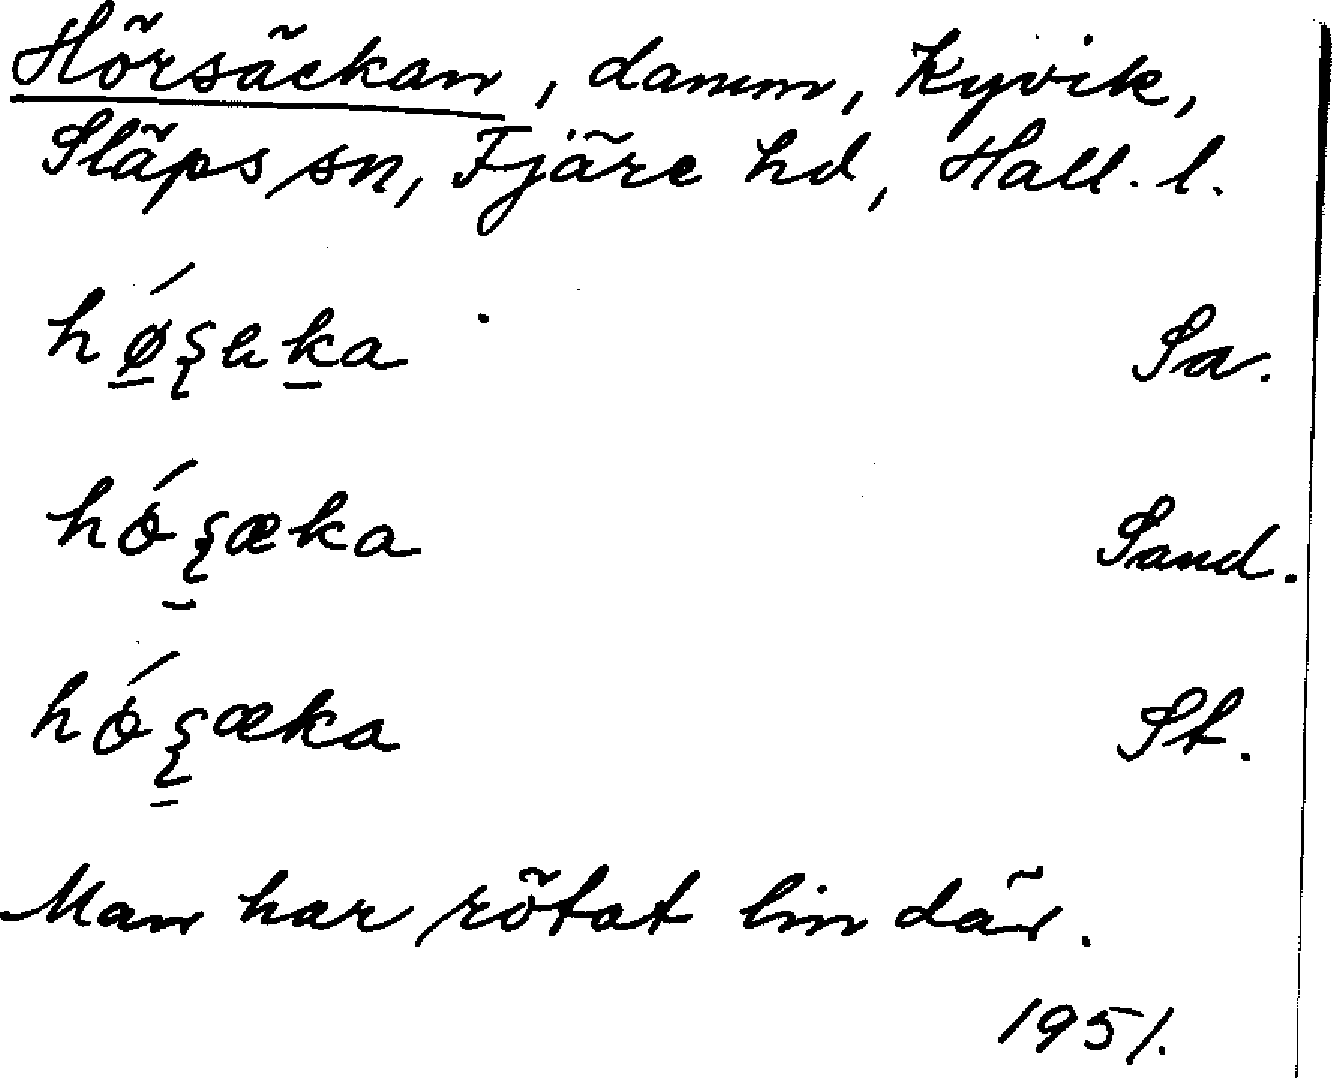 Hörsäckan, damm, Kyvik,
Släps sn, Fjäre hd, Hall. l.
Sa.
Sand.
St.
Man har rötat lin där.
1951.